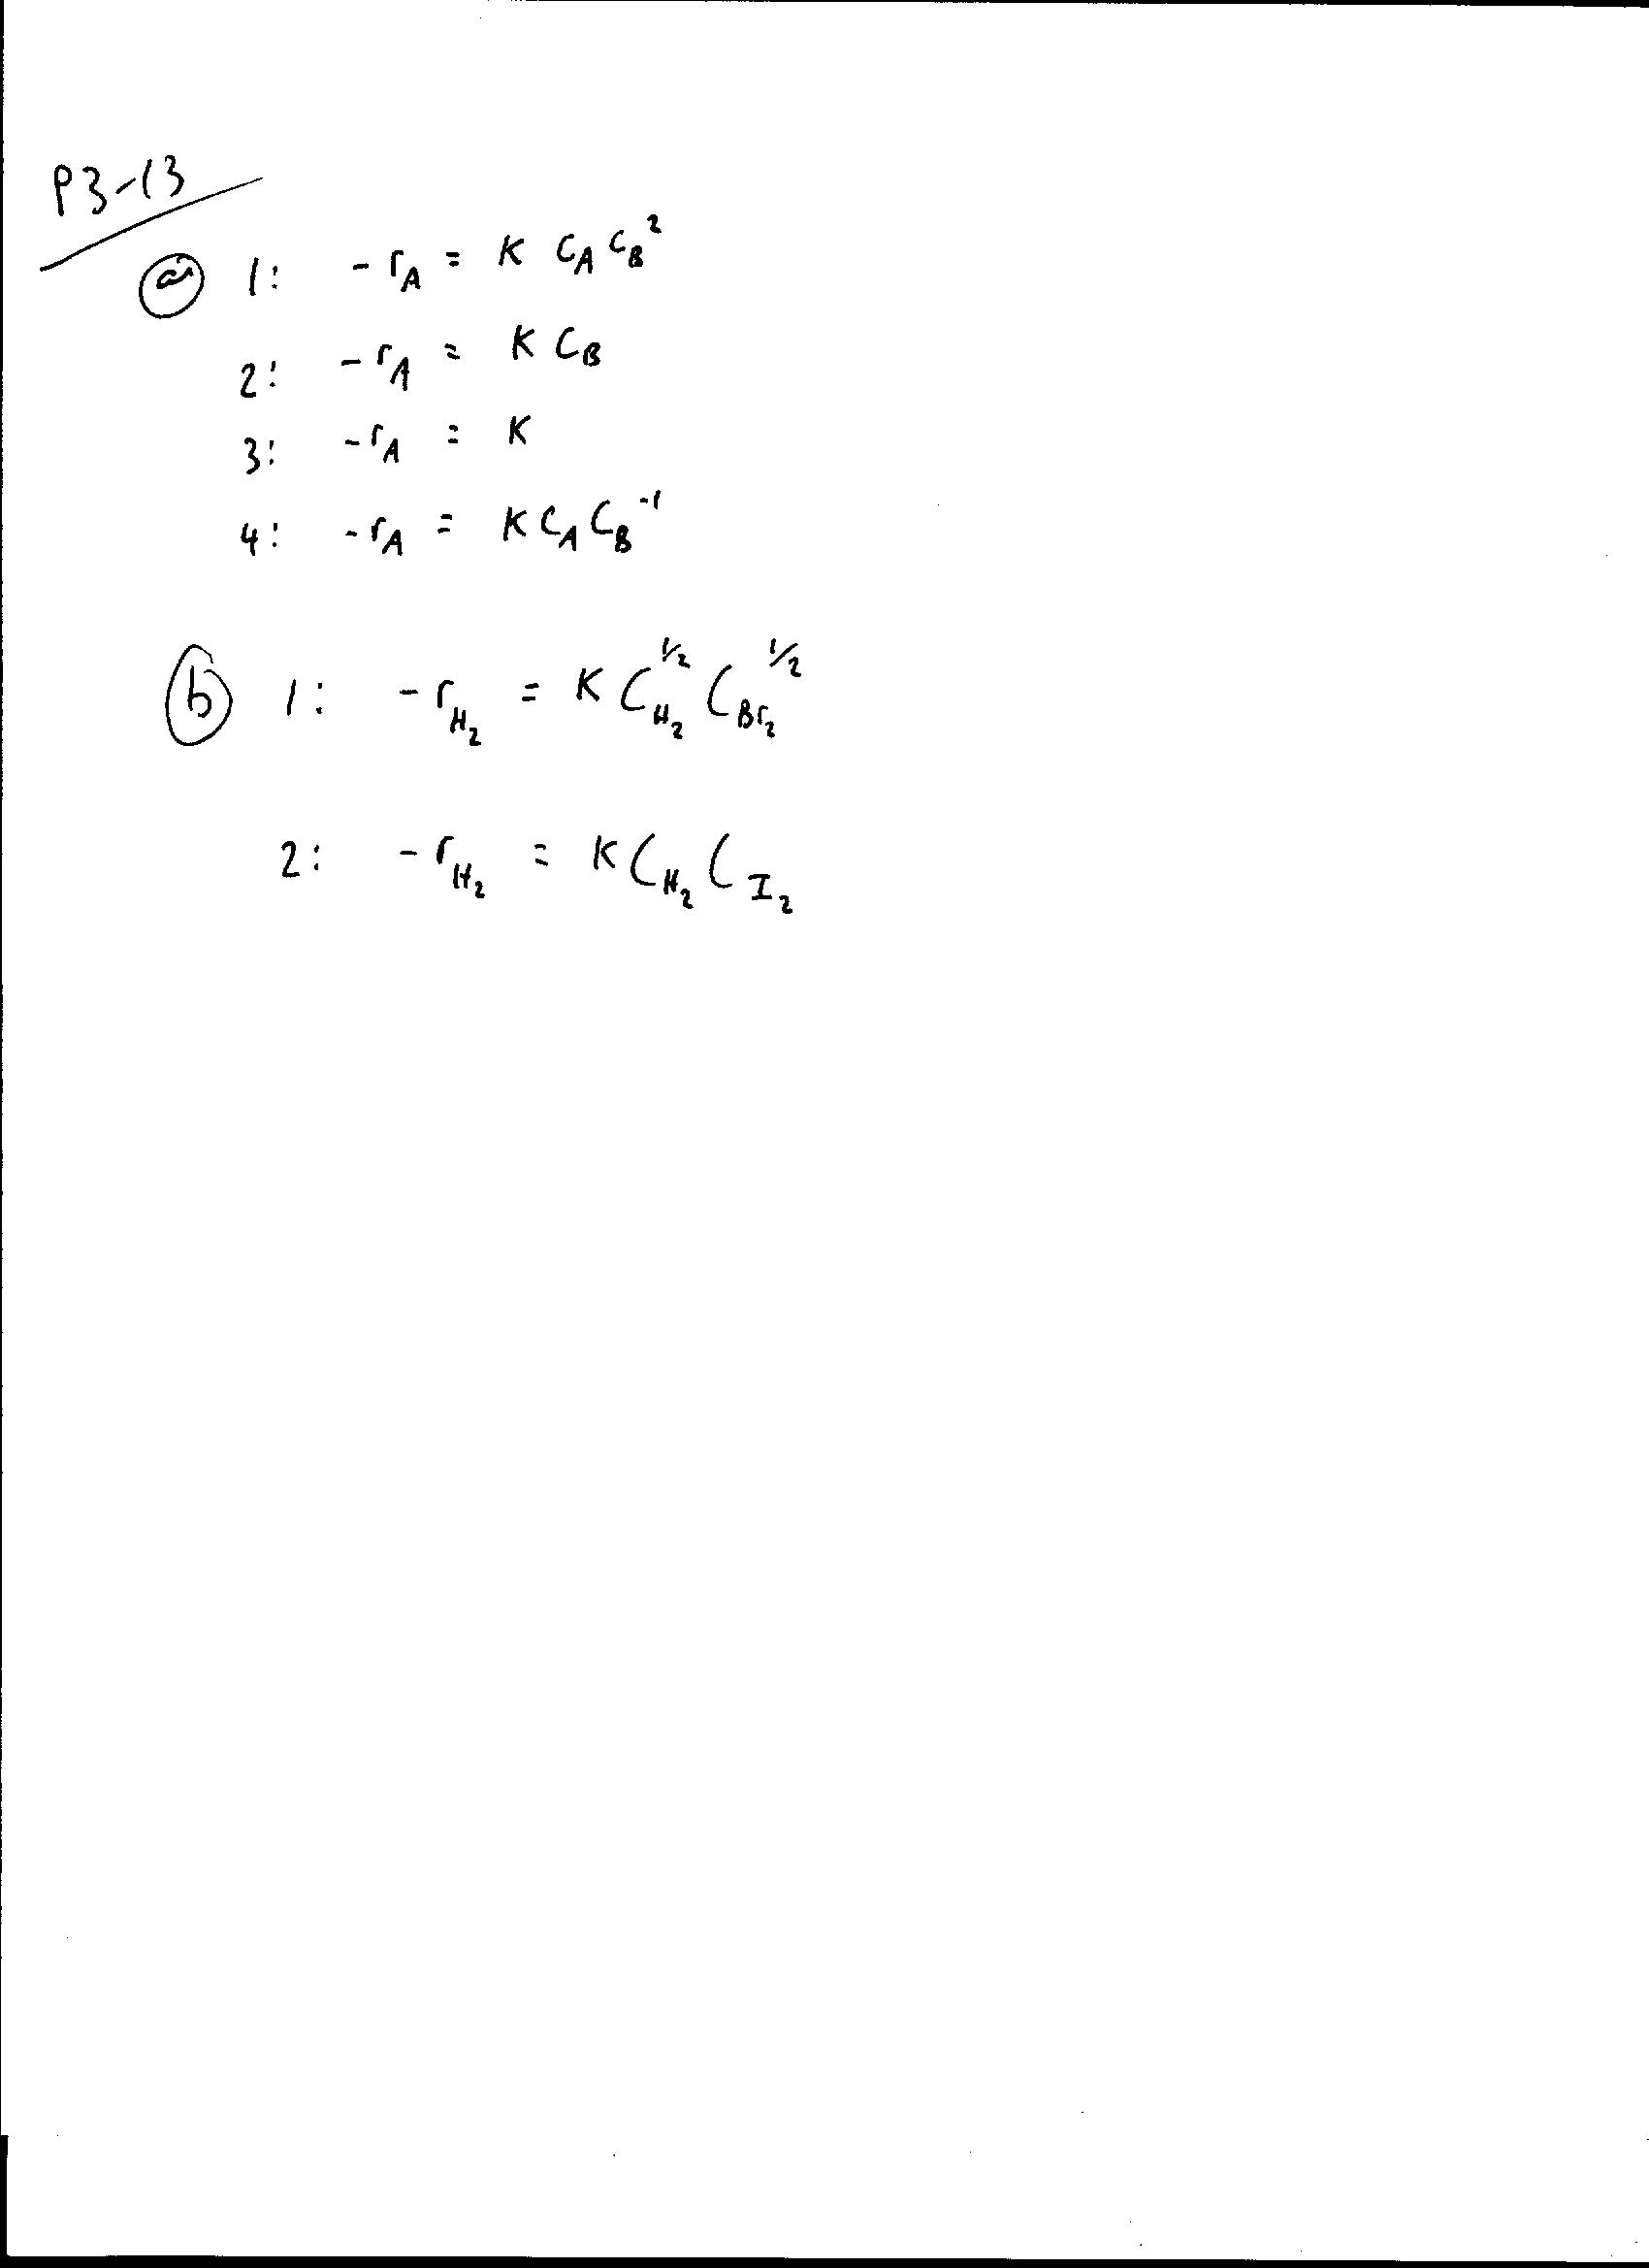 P3-13
(a) 1: -r_A = K C_A C_B^2
2: -r_A = K C_B
3: -r_A = K
4: -r_A = K C_A C_B^-1
(b) 1: -r_H₂ = K C_H₂^1/2 C_Br₂^1/2
2: -r_H₂ = K C_H₂ C_I₂